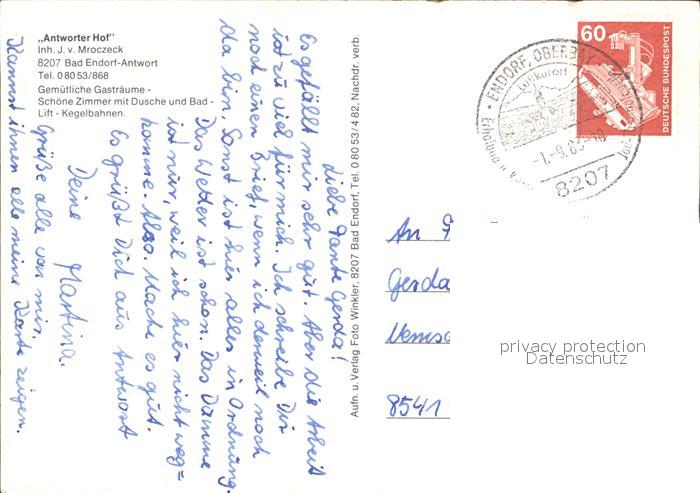 „Antworter Hof"
Inh. J. v. Mroczeck
8207 Bad Endorf-Antwort
Tel. 0 80 53/868
Gemütliche Gasträume -
Schöne Zimmer mit Dusche und Bad -
Lift - Kegelbahnen.
Liebe Tante Gerda!
Es gefällt mir sehr gut. Aber die Arbeit
ist zu viel für mich. Ich schreibe Dir
noch einen Brief, wenn ich derweil noch
da bin. Sonst ist hier alles in Ordnung.
Das Wetter ist schön. Das Dumme
ist nur, weil ich hier nicht weg=
komme. Also. Mache es gut.
Es grüßt Dich aus Antwort
Deine Martina.
Grüße alle von mir.
Kannst ihnen alle meine Karte zeigen.
Aufn. u. Verlag Foto Winkler, 8207 Bad Endorf, Tel. 0 80 53/4 82, Nachdr. verb.
60
DEUTSCHE BUNDESPOST
ENDORF, OBERBAY
Luftkurort
Erholung u.
-1.-9.83-10
8207
An F
Gerda
8541
privacy protection
Datenschutz